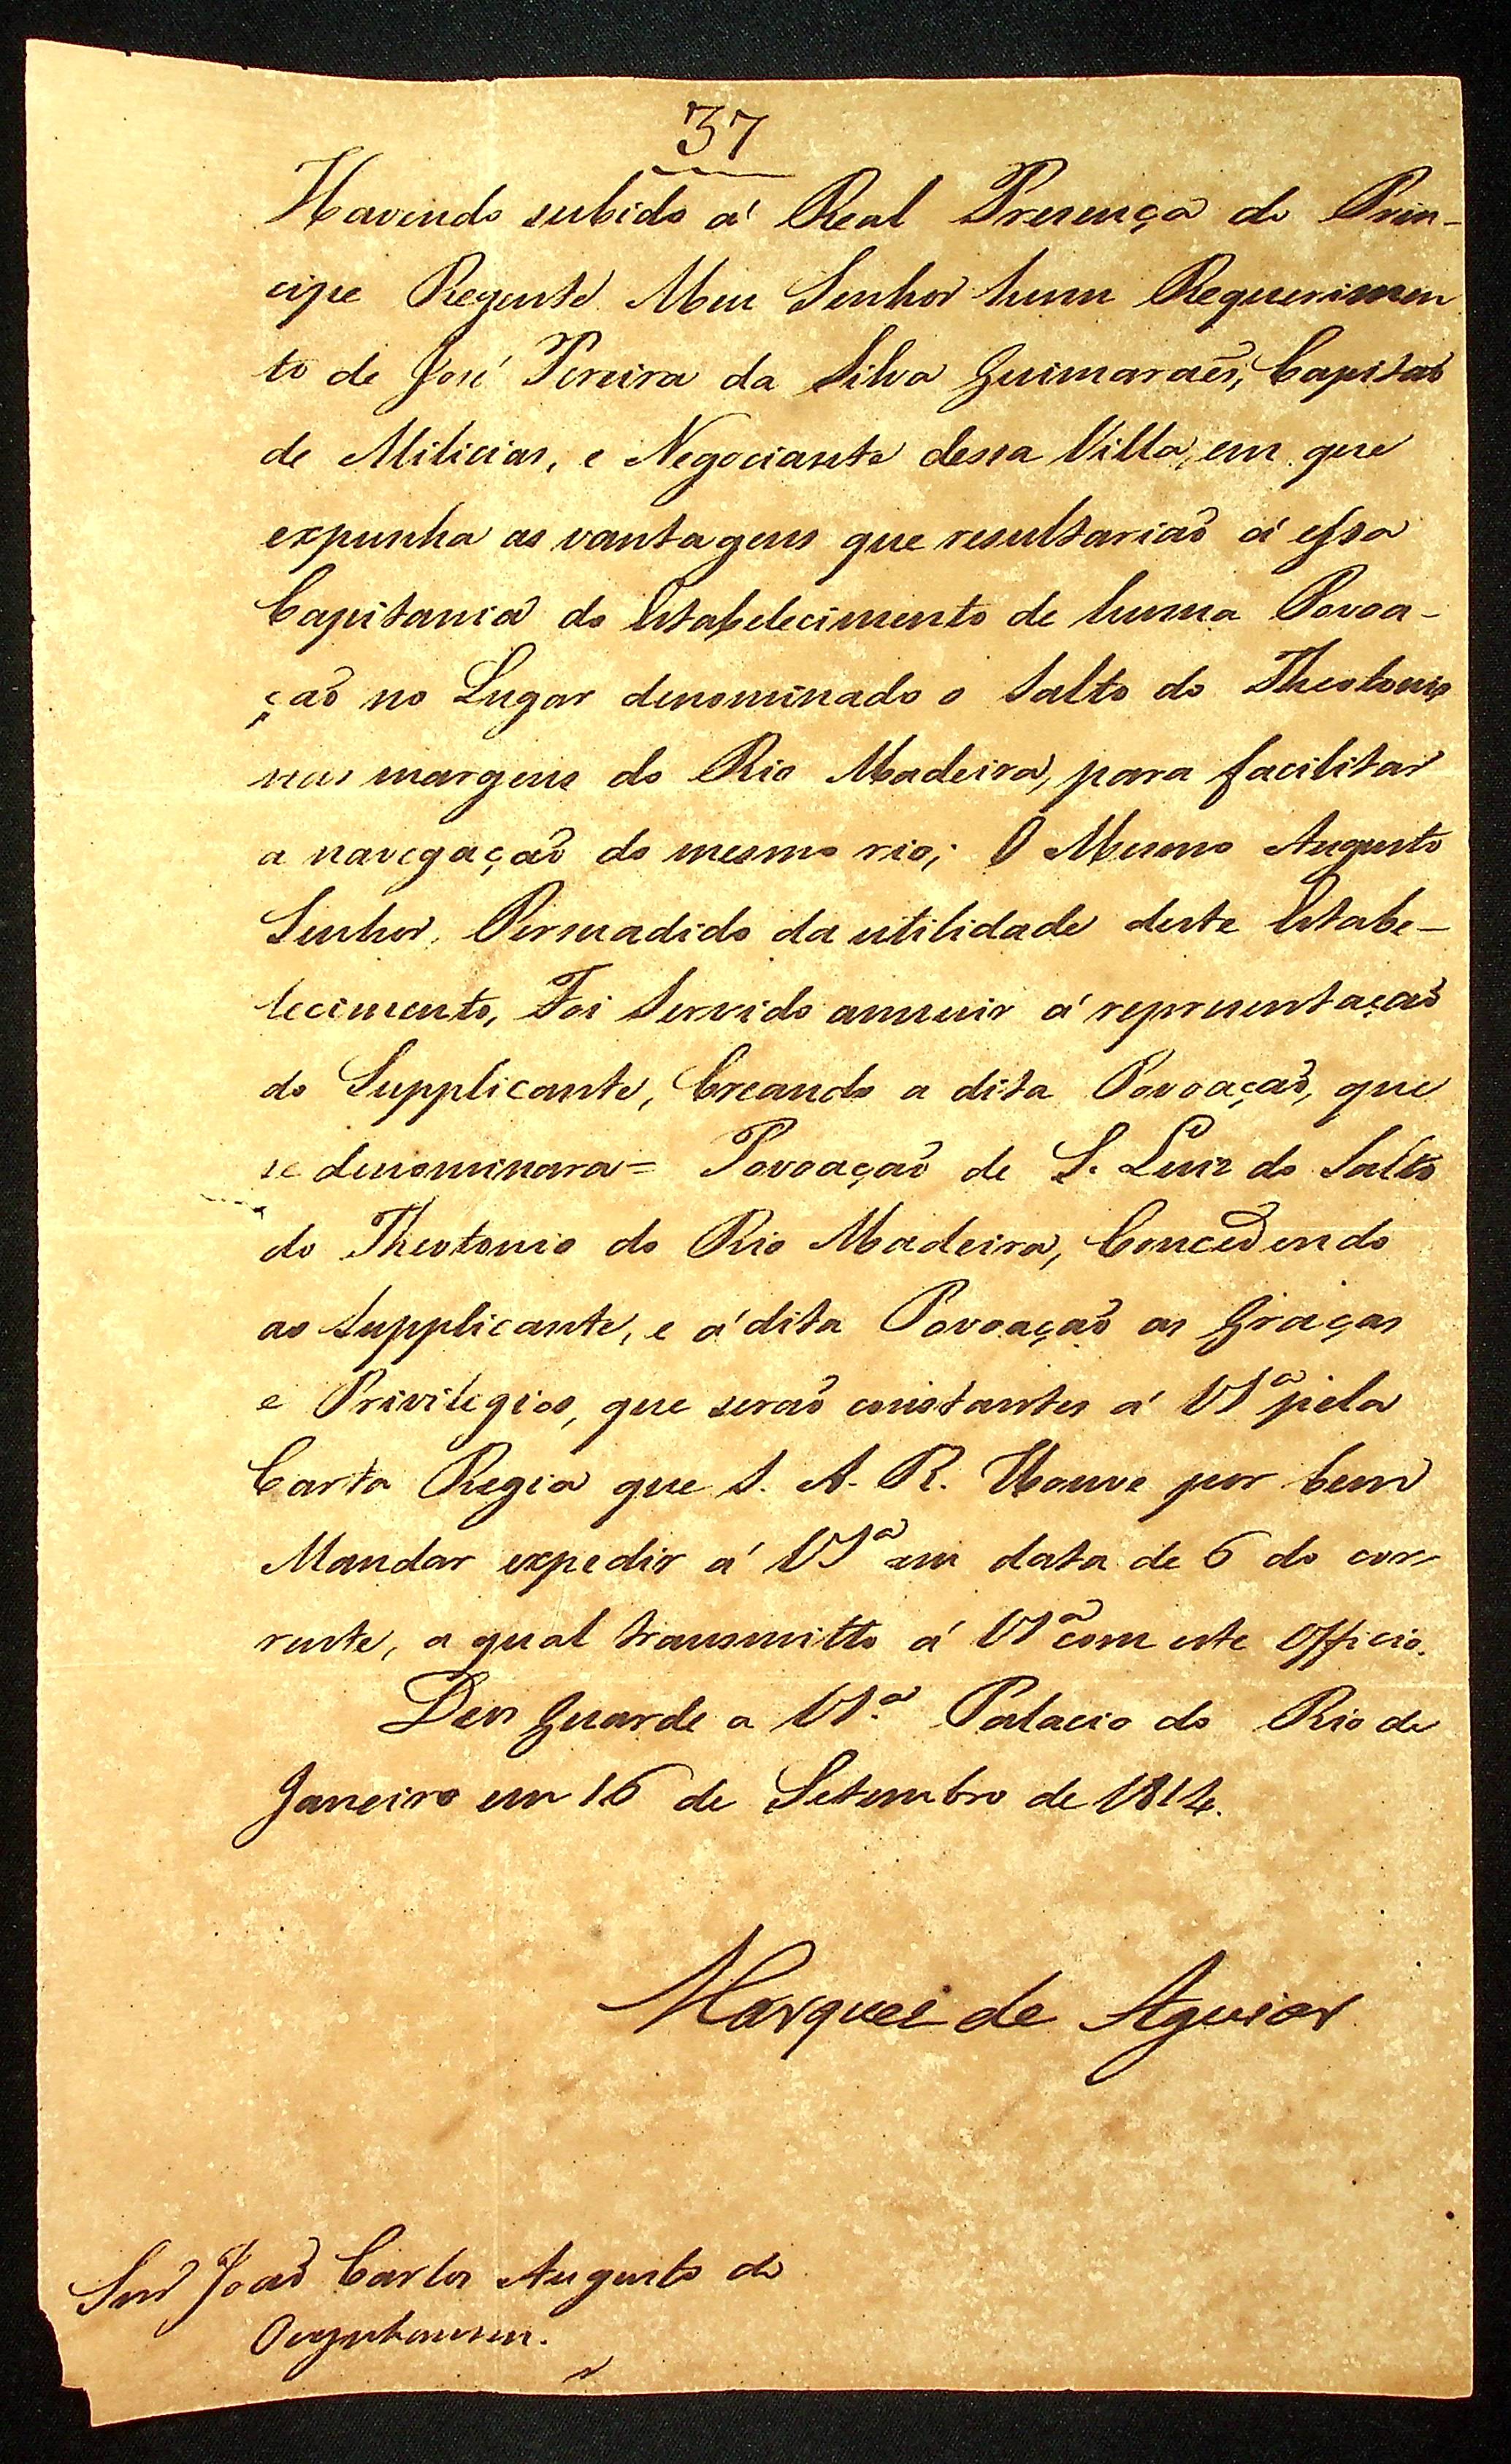 37
Havendo subido á Real Presença do Prin-
cipe Regente Meu Senhor hum Requerimen
to de José Pereira da Silva Guimaraẽs, Capitaõ
de Milicias, e Negociante dessa Villa, em que
expunha as vantagens que resultariaõ á essa
Capitania do Estabelecimento de huma Povoa-
çaõ no Lugar denominado o Salto do Theotonio
nas margens do Rio Madeira, para facilitar
a navegaçaõ do mesmo rio; O Mesmo Augusto
Senhor, Persuadido da utilidade deste Estabe-
lecimento, Foi Servido annuir á representaçaõ
do Supplicante, Creando a dita Povoaçaõ, que
se denominara = Povoaçaõ de S. Luiz do Salto
do Theotonio do Rio Madeira, Concedendo
ao Supplicante, e á dita Povoaçaõ as Graças
e Privilegios, que seraõ constantes á VSª pela
Carta Regia que S. A. R. Houve por bem
Mandar expedir á VSª em data de 6 do cor-
rente, a qual transmitto á VSª com este Officio.
Deos Guarde a VSª. Palacio do Rio de
Janeiro em 16 de Setembro de 1814.
Marquez de Aguiar
Snr João Carlos Augusto de
Oeynhausen.